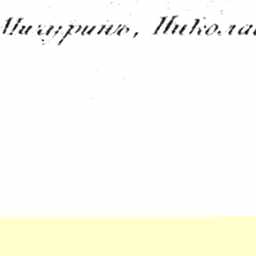 Мичуринъ, Николай